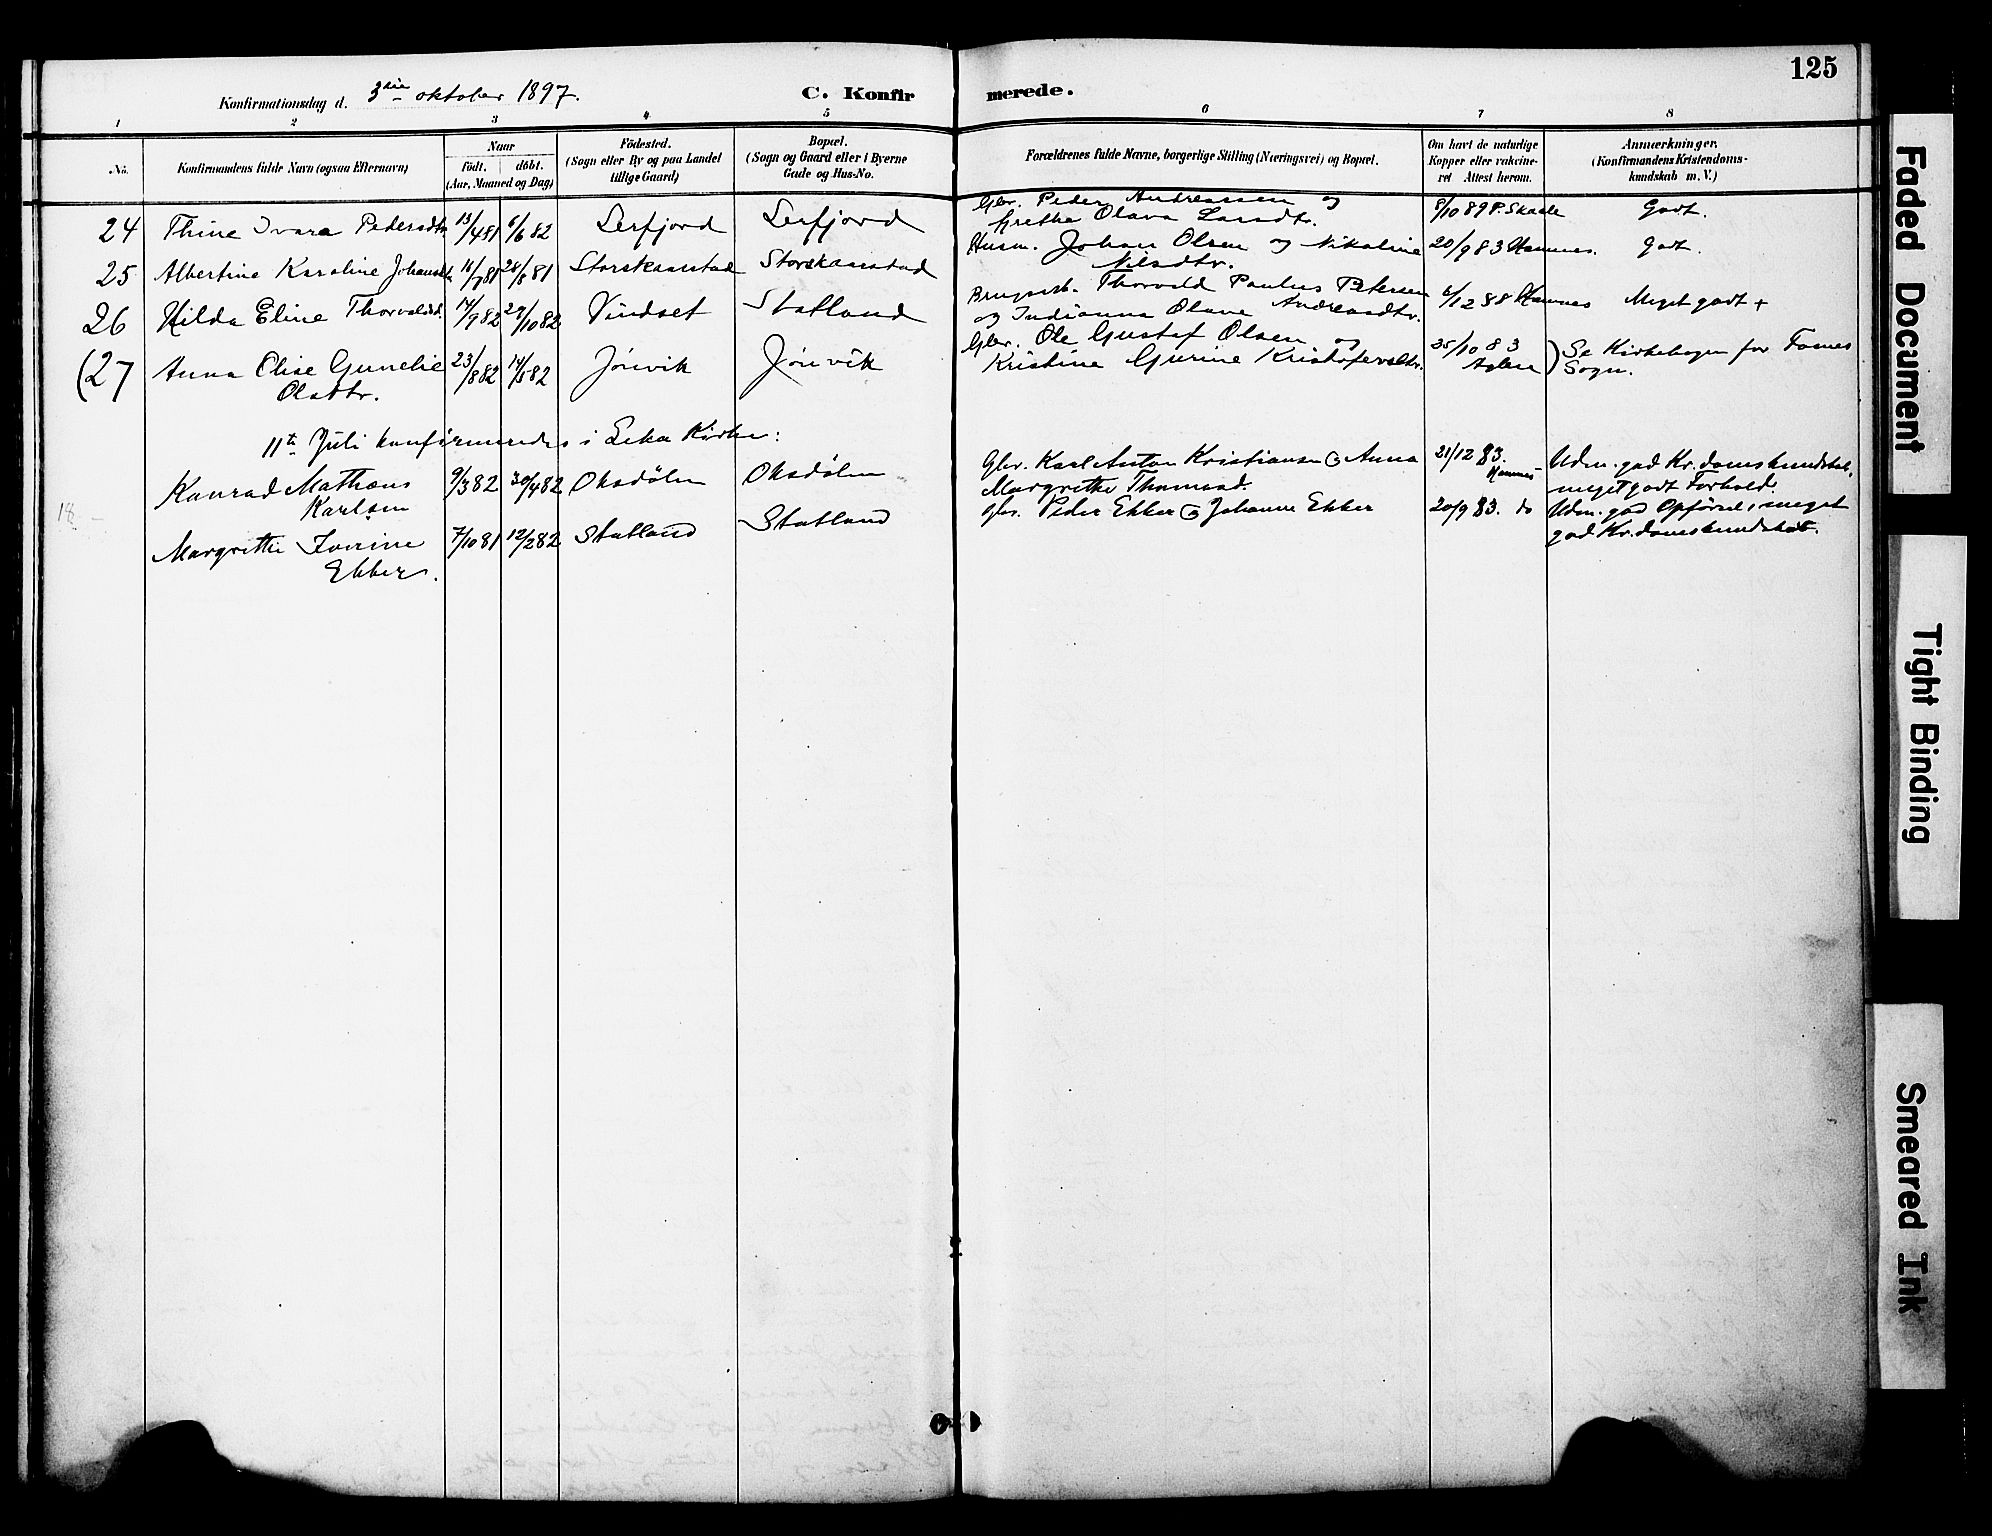 125
Konfirmationsdag d. 3die oktober 1897.
C. Konfirmerede.
1 2 3 4 5 6 7 8
No.
Konfirmandens fulde Navn (ogsaa Efternavn)
Naar
født. døbt.
(Aar, Maaned og Dag)
Fødested.
(Sogn eller By og paa Landet
tillige Gaard)
Bopæl.
(Sogn og Gaard eller i Byerne
Gade og Hus-No.
Forældrenes fulde Navne, borgerlige Stilling (Næringsvei) og Bopæl.
Om havt de naturlige
Kopper eller vakcine-
ret Attest herom.
Anmærkninger.
(Konfirmandens Kristendoms-
kundskab m. V.)
24 Thine Ivara Pedersdtr 13/4 81 6/6 82 Lerfjord Lerfjord Gbr. Peder Andreassen og
Grethe Olava Larsdtr. 8/10 89 P. Skaale Godt.
25 Albertine Karoline Johansdtr 16/7 81 28/8 81 Storskamstad Storskamstad Husm. Johan Olsen og Nikoline
Nilsdtr. 20/9 83 Hamnes. Godt.
26 Hilda Eline Thorvaldsd. 17/9 82 29/10 82 Vindset Statland Brugsb. Thorvald Paulus Petersen
og Indianna Olava Andreasdtr. 6/12 88 Hamnes Meget godt +
(27 Anna Elise Gunelie
Olsdtr. 23/8 82 14/5 82 Jönvik Jönvik Gbr. Ole Gustaf Olsen og
Kristine Gurine Kristofersdtr. 25/10 83
) Se Kirkebogen for Fosnes
Sogn.
11te Juli konfirmeredes i Leka Kirke:
Konrad Mathæus
Karlsen 9/3 82 30/4 82 Oksdölen Oksdölen Gbr. Karl Anton Kristiansen og Anna
Margrethe Thomasd. 21/12 83.
Hamnes Udm. god Kr.domskundskab,
meget godt Forhold.
18 -
Margrethe Jovine
Ekker. 7/10 81 12/2 82 Statland Statland Gbr. Peder Ekker og Johanne Ekker 20/9 83. do Udm. god Opførsel, meget
god Kr.domskundskab.
Faded Document
Tight Binding
Smeared Ink